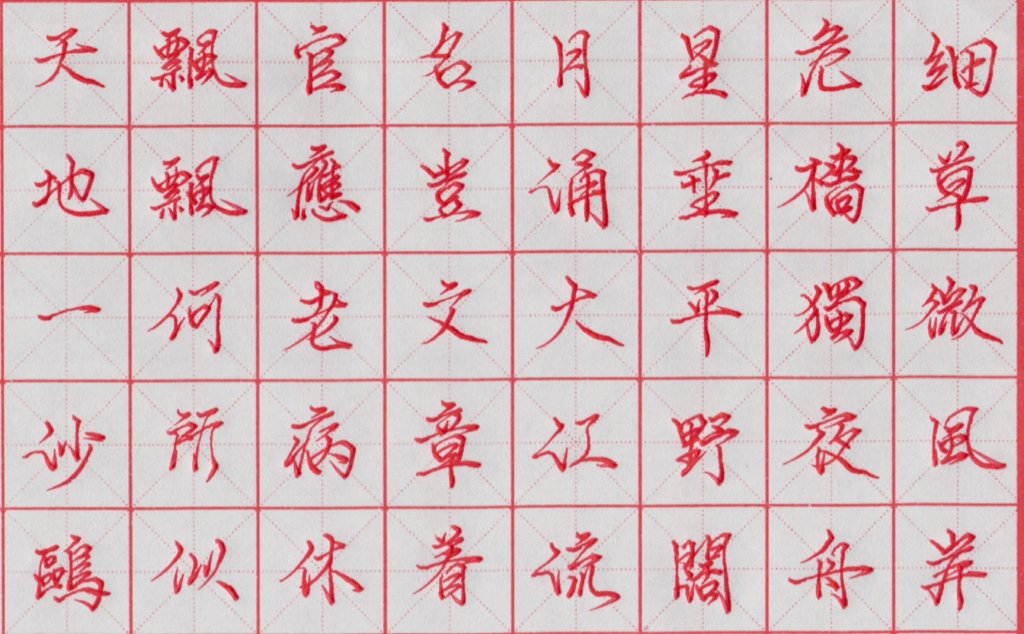 细草微風岸
危檣獨夜舟
星垂平野闊
月涌大江流
名豈文章着
官應老病休
飄飄何所似
天地一沙鷗